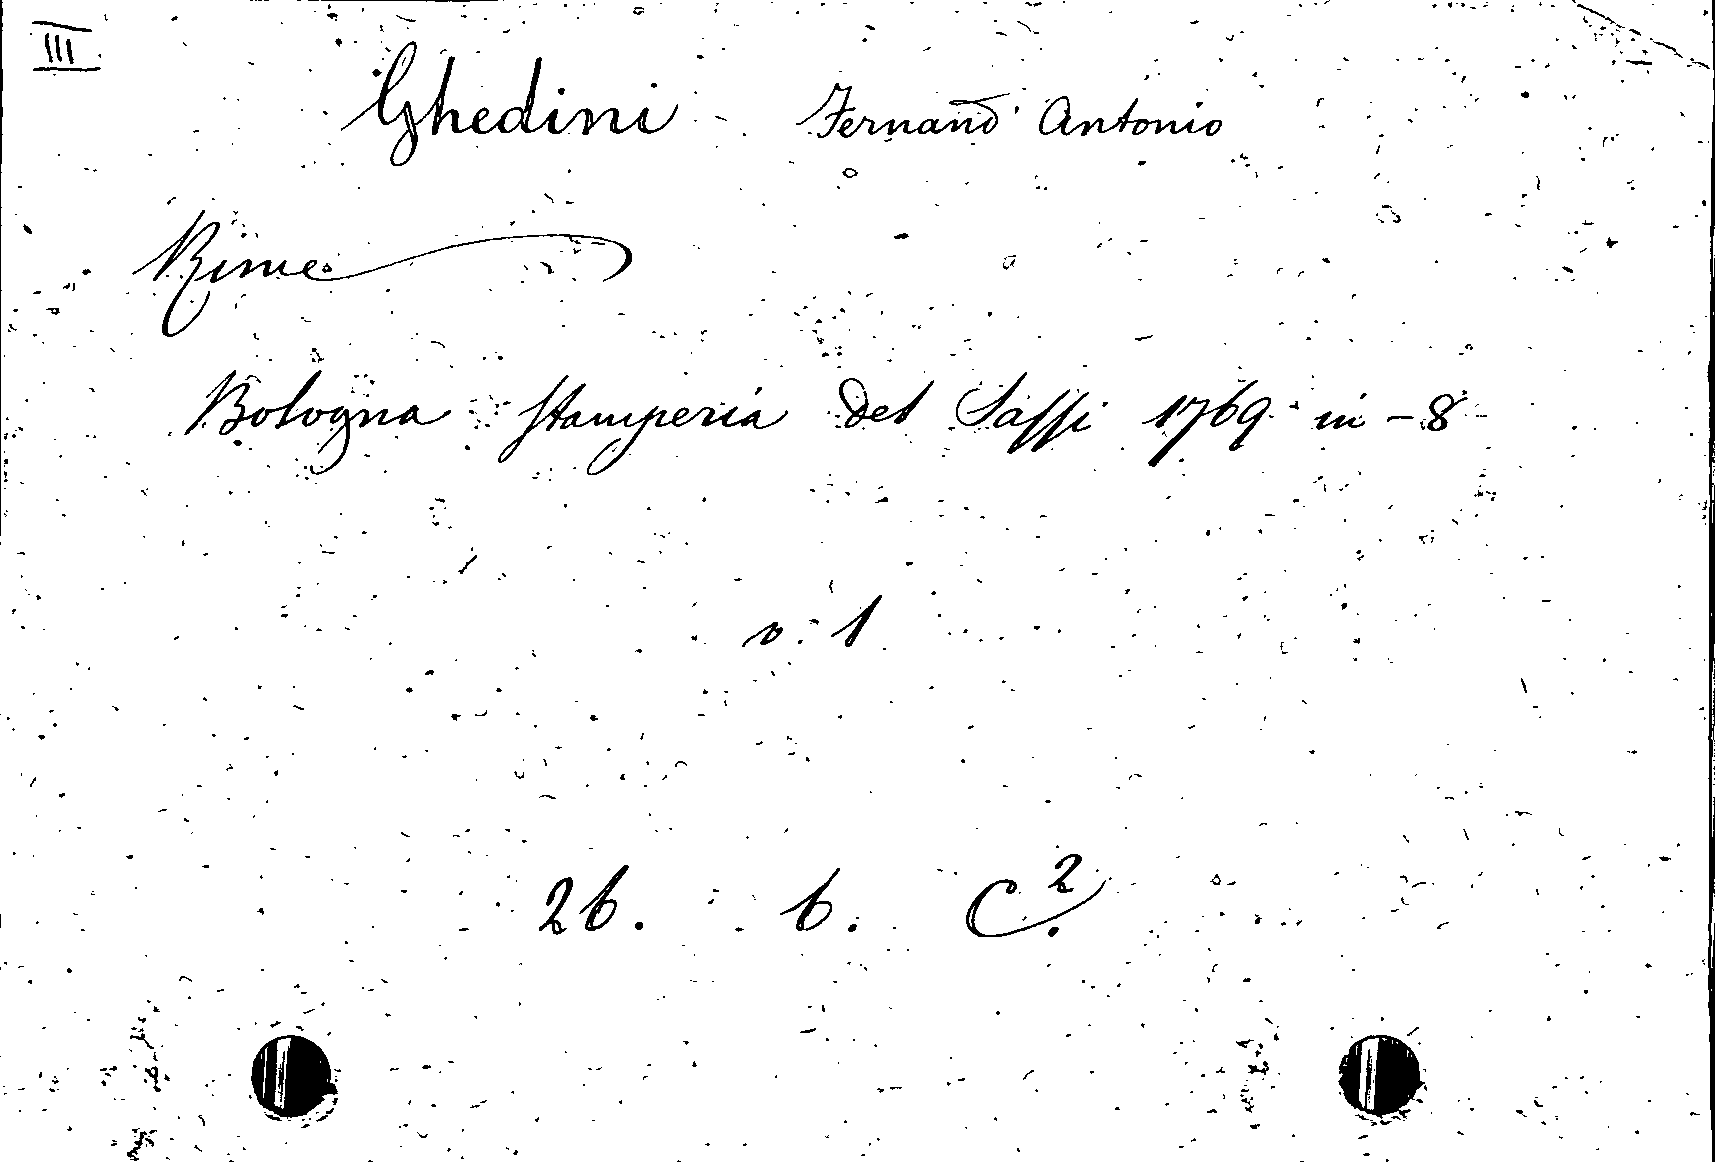 III
Ghedini Fernand' Antonio
Rime
Bologna Stamperia del Sassi 1769 in-8
v. 1
26. b. C².